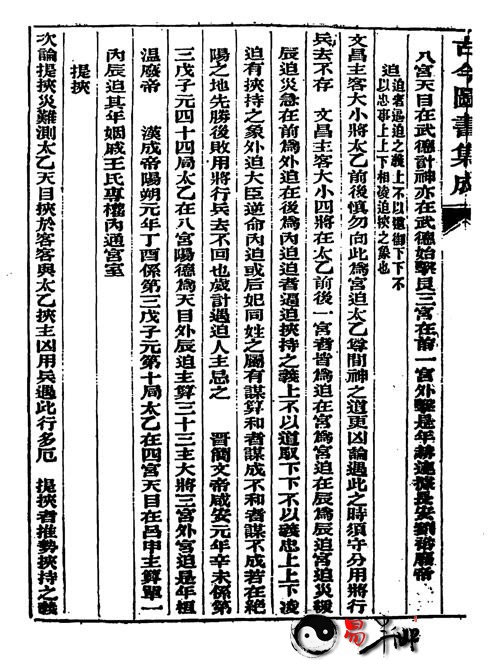 古今圖書集成
八宮天目在武德計神亦在武德始擊艮三宮在前一宮外擊是年赫連據長安劉裕廢帝
迫
迫者逼迫之義上不以道御下下不
以忠事上上下相凌迫挾之象也
文昌主客大小將太乙前後慎勿向此為宮迫太乙尊間神之道更凶論遇此之時須守分用將行
兵去不存　文昌主客大小四將在太乙前後一宮者皆為迫在宮為宮迫在辰為辰迫宮迫災緩
辰迫災急在前為外迫在後為內迫迫者逼迫挾持之義上不以道取下下不以義忠上上下凌
迫有挾持之象外迫大臣逆命內迫或后妃同姓之屬有謀算和者謀成不和者謀不成若在絕
陽之地先勝後敗用將行兵去不回也歲計遇迫人主忌之　晉簡文帝咸安元年辛未係第
三戊子元四十四局太乙在八宮陽德為天目外辰迫主算三十三主大將三宮外宮迫是年桓
溫廢帝　漢成帝陽朔元年丁酉係第三戊子元第十局太乙在四宮天目在呂申主算單一
內辰迫其年姻戚王氏專權內通宮室
提挾
次論提挾災難測太乙天目挾於客客與太乙挾主凶用兵遇此行多厄　提挾者推勢挾持之義
易